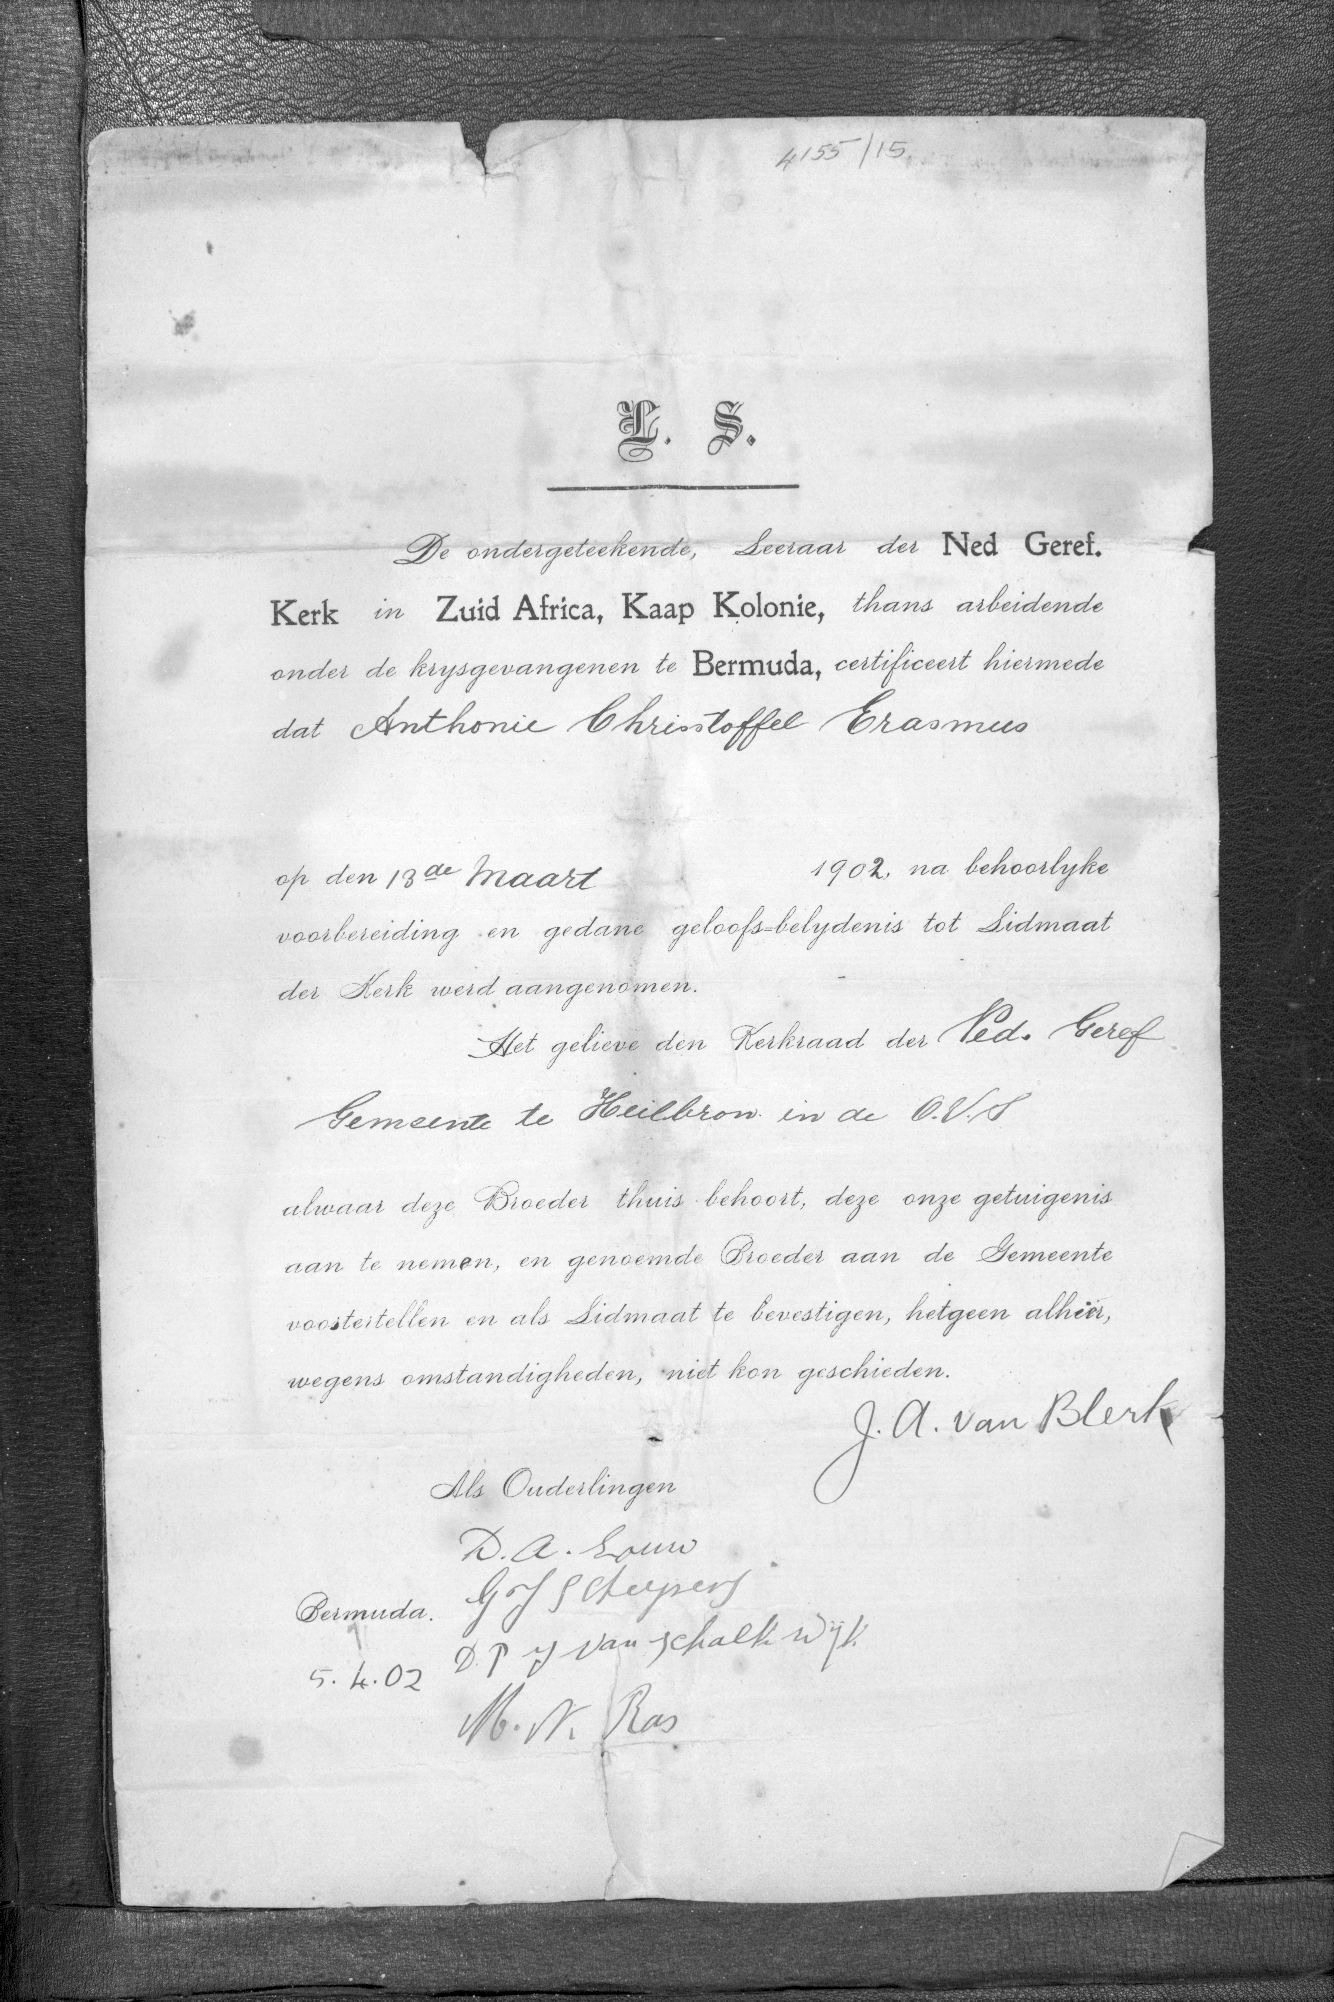 4155/15
L. S.
De ondergeteekende, Leeraar der Ned Geref.
Kerk in Zuid Africa, Kaap Kolonie, thans arbeidende
onder de krysgevangenen te Bermuda, certificeert hiermede
dat Anthonie Christoffel Erasmus
op den 13de Maart 1902, na behoorlyke
voorbereiding en gedane geloofs-belydenis tot Lidmaat
der Kerk werd aangenomen.
Het gelieve den Kerkraad der Ned. Geref
Gemeente te Heilbron in de O.V.S
alwaar deze Broeder thuis behoort, deze onze getuigenis
aan te nemen, en genoemde Broeder aan de Gemeente
voortestellen en als Lidmaat te bevestigen, hetgeen alhier,
wegens omstandigheden, niet kon geschieden.
J. A. van Blerk
Als Ouderlingen
D. A. Louw
G J Scheepers
Bermuda.
D. P J van Schalkwijk
5. 4. 02
M. N. Ras